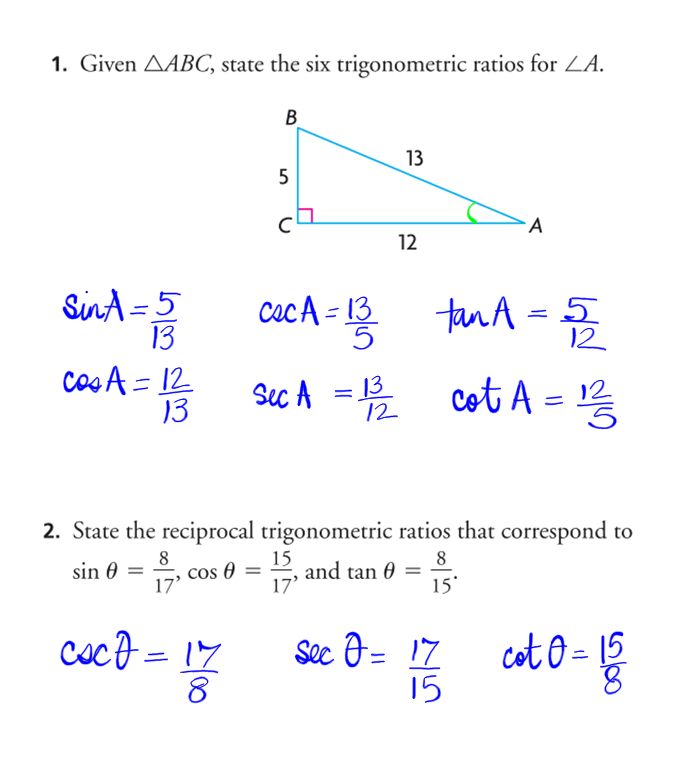 1. Given △ABC, state the six trigonometric ratios for ∠A.
B
13
5
C
A
12
sinA = 5/13 cscA = 13/5 tanA = 5/12
cosA = 12/13 sec A = 13/12 cot A = 12/5
2. State the reciprocal trigonometric ratios that correspond to
sin θ = 8/17, cos θ = 15/17, and tan θ = 8/15.
cscθ = 17/8 sec θ = 17/15 cotθ = 15/8